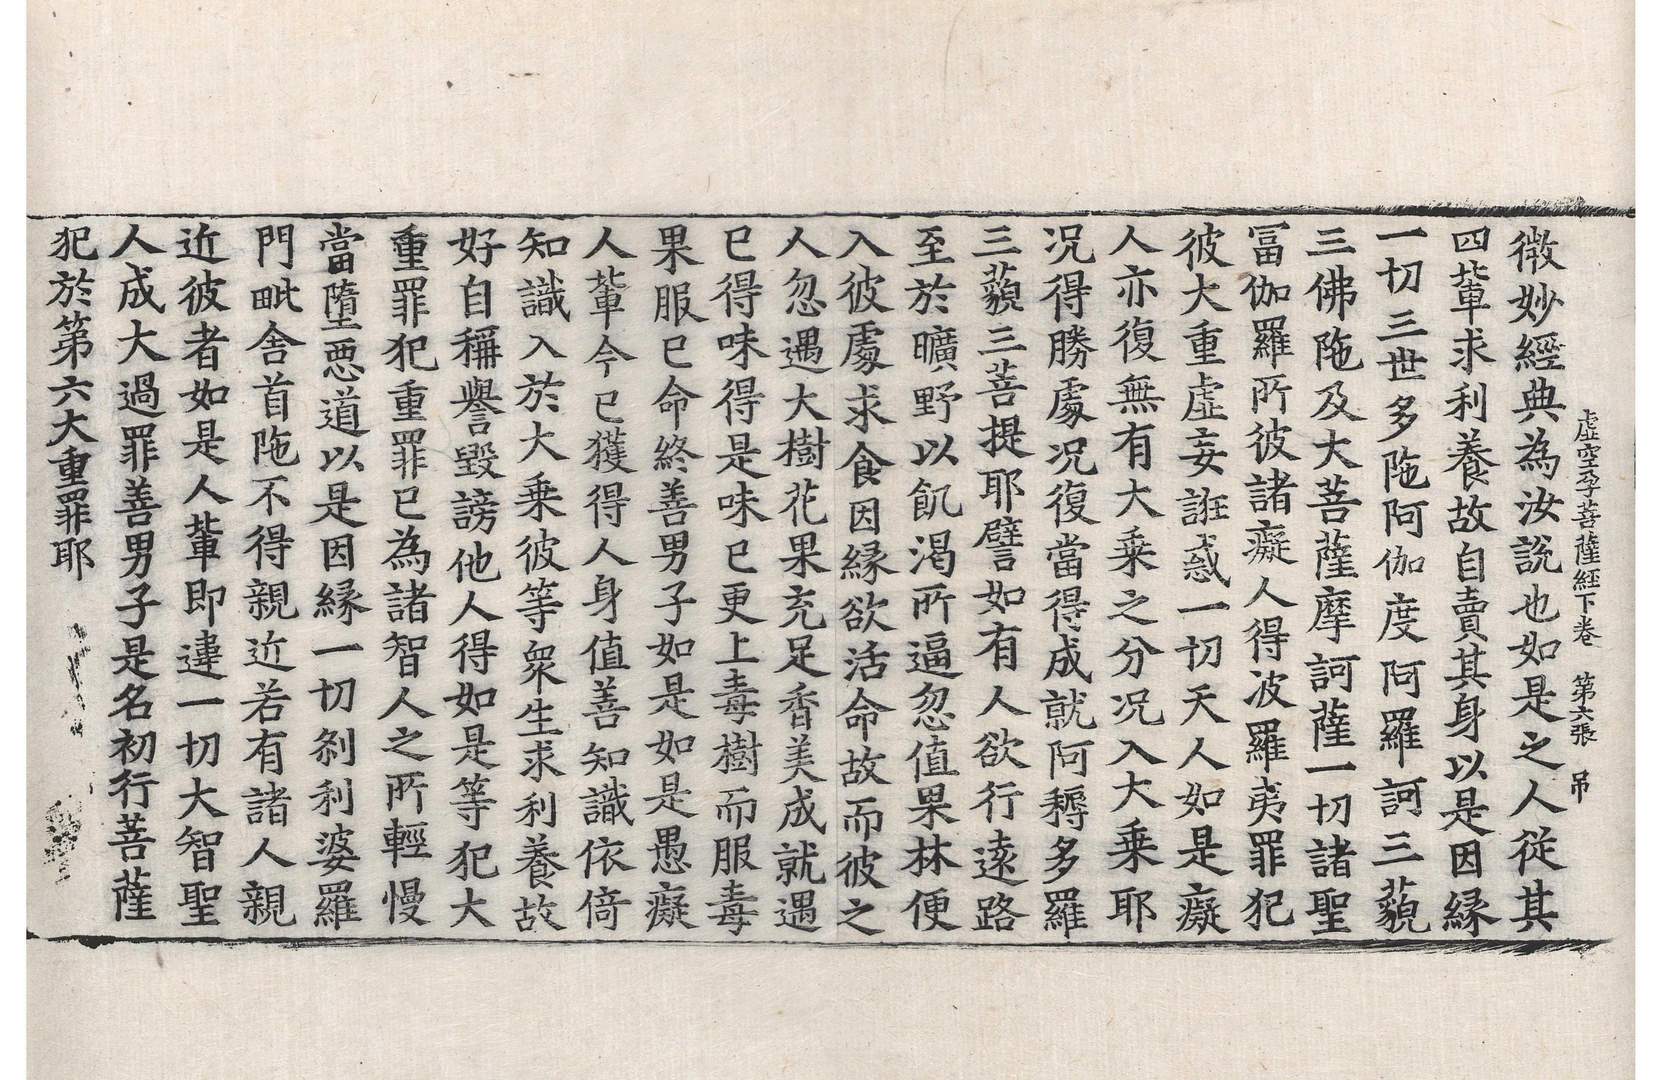 虛空孕菩薩經下卷 第六張 吊
微妙經典為汝說也如是之人從其
四輩求利養故自賣其身以是因緣
一切三世多陁阿伽度阿羅訶三藐
三佛陁及大菩薩摩訶薩一切諸聖
冨伽羅所彼諸癡人得波羅夷罪犯
彼大重虛妄誑惑一切天人如是癡
人亦復無有大乗之分况入大乗耶
况得勝處况復當得成就阿耨多羅
三藐三菩提耶譬如有人欲行逺路
至於曠野以飢渴所逼忽值果林便
入彼處求食因緣欲活命故而彼之
人忽遇大樹花果充足香美成就遇
已得味得是味已更上毒樹而服毒
果服已命終善男子如是如是愚癡
人軰今已獲得人身值善知識依倚
知識入於大乗彼等衆生求利養故
好自稱譽毀謗他人得如是等犯大
重罪犯重罪已為諸智人之所輕慢
當墮惡道以是因緣一切刹利婆羅
門毗舍首陁不得親近若有諸人親
近彼者如是人軰即違一切大智聖
人成大過罪善男子是名初行菩薩
犯於第六大重罪耶